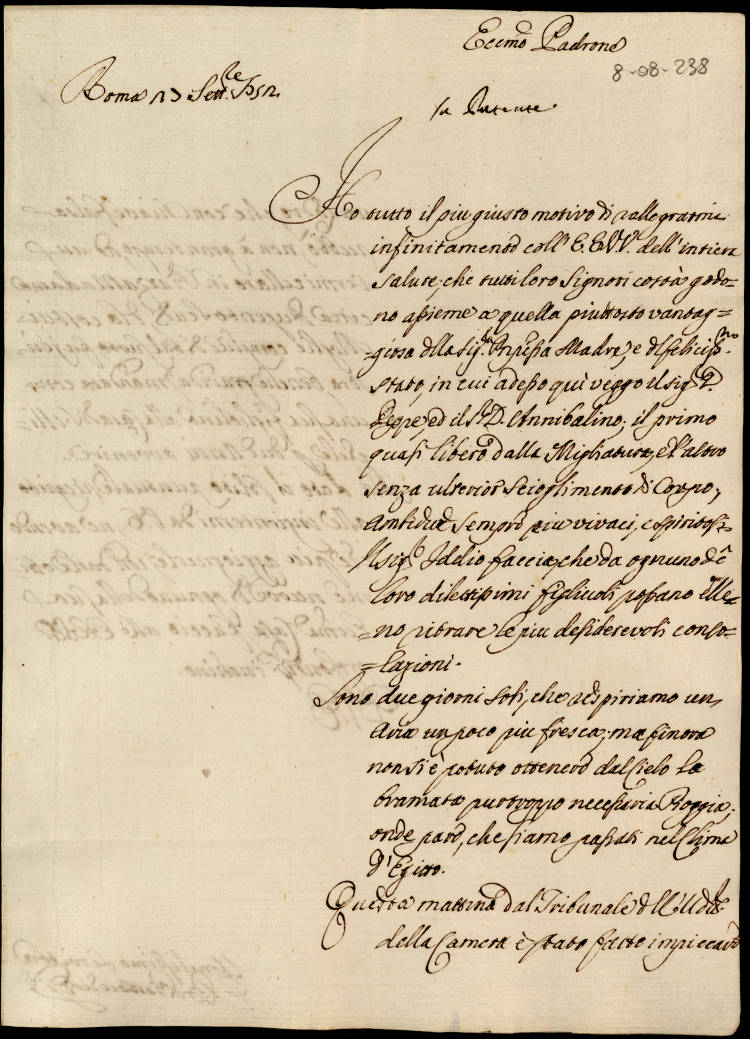 Eccmo Padrone
8-08-238
Roma 23 Sett.re
la Patente
Ho tutto il piu giusto motivo di rallegrarmi
infinitamente coll' E.E.VV. dell' intiera
salute, che tutti loro Signori costà godo=
no assieme a quella piuttosto vantag=
giosa della Sig.ra Madre, e del felicissmo
stato, in cui adesso qui veggo il Sig.r D.
Peppe, ed il S.r D. Annibalino; il primo
quasi libero dalla Migliatura, e l'altro
senza ulterior Scioglimento di Corpo;
Amidue sempre piu vivaci, e spiritosi
Il Sig.re Iddio faccia, che da ognuno de
loro dilettissimi figliuoli possano elle=
no ritrare le piu desiderevoli conso=
=lazioni.
Sono due giorni soli, che respiriamo un
Aria un poco piu fresca; ma finora
non si è potuto ottenere dal Cielo la
bramata purtroppo necessaria Pioggia;
onde pare, che siamo passati nel Clima
d'Egitto.
Questa mattina dal Tribunale dell'
della Camera è stato fatto impiccare